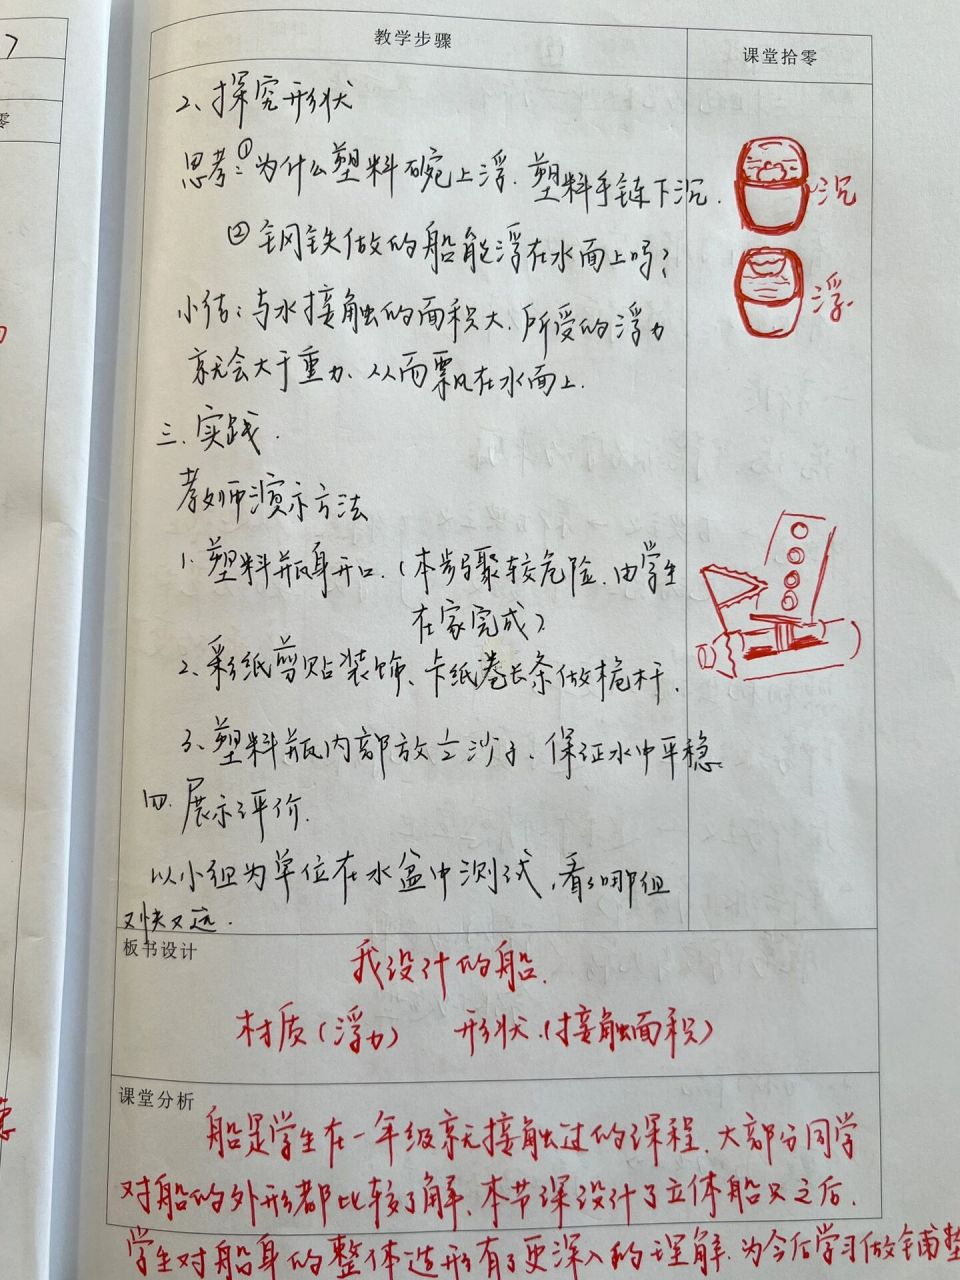 教学步骤
课堂拾零
2、探究形状
思考:①为什么塑料碗上浮.塑料手链下沉.
②钢铁做的船能浮在水面上吗?
小结:与水接触的面积大.所受的浮力
就会大于重力、从而飘在水面上.
沉
浮.
三.实践.
教师演示方法
1.塑料瓶身开口.(本步骤较危险.由学生
在家完成)
2、彩纸剪贴装饰、卡纸卷长条做桅杆.
3、塑料瓶内部放些沙子、保证水中平稳.
四.展示评价.
以小组为单位在水盆中测试,看哪组
又快又远.
板书设计
我设计的船.
材质(浮力) 形状.(接触面积)
课堂分析
船是学生在一年级就接触过的课程.大部分同学
对船的外形都比较了解.本节课设计了立体船只之后.
学生对船身的整体造形有了更深入的理解.为今后学习做铺垫
零